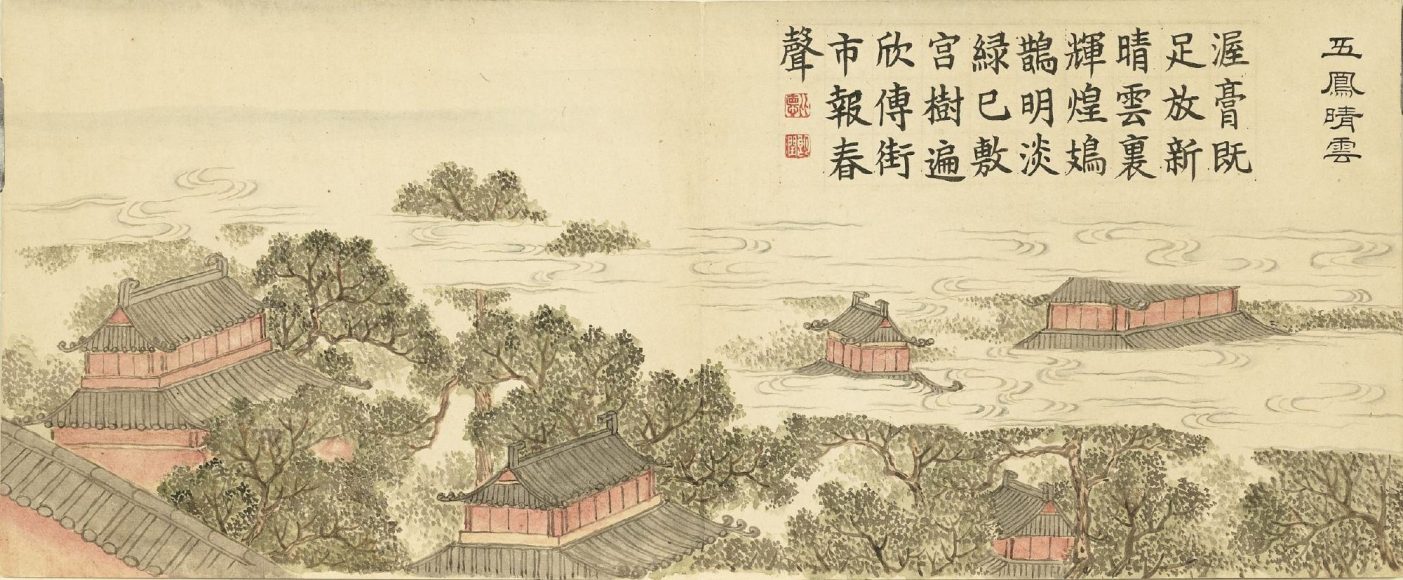 五鳳晴雲
渥膏既
足放新
晴雲裏
輝煌鳷
鵲明淡
緑已敷
宮樹遍
欣傳街
市報春
聲